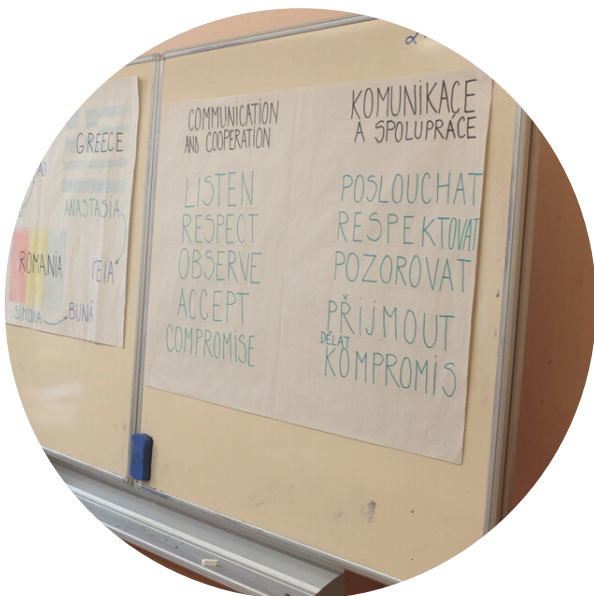 GREECE
ANASTASIA
ROMANIA
SIMONA
BUNĂ
COMMUNICATION
AND COOPERATION
LISTEN
RESPECT
OBSERVE
ACCEPT
COMPROMISE
KOMUNIKACE
A SPOLUPRÁCE
POSLOUCHAT
RESPEKTOVAT
POZOROVAT
PŘIJMOUT
DĚLAT
KOMPROMIS